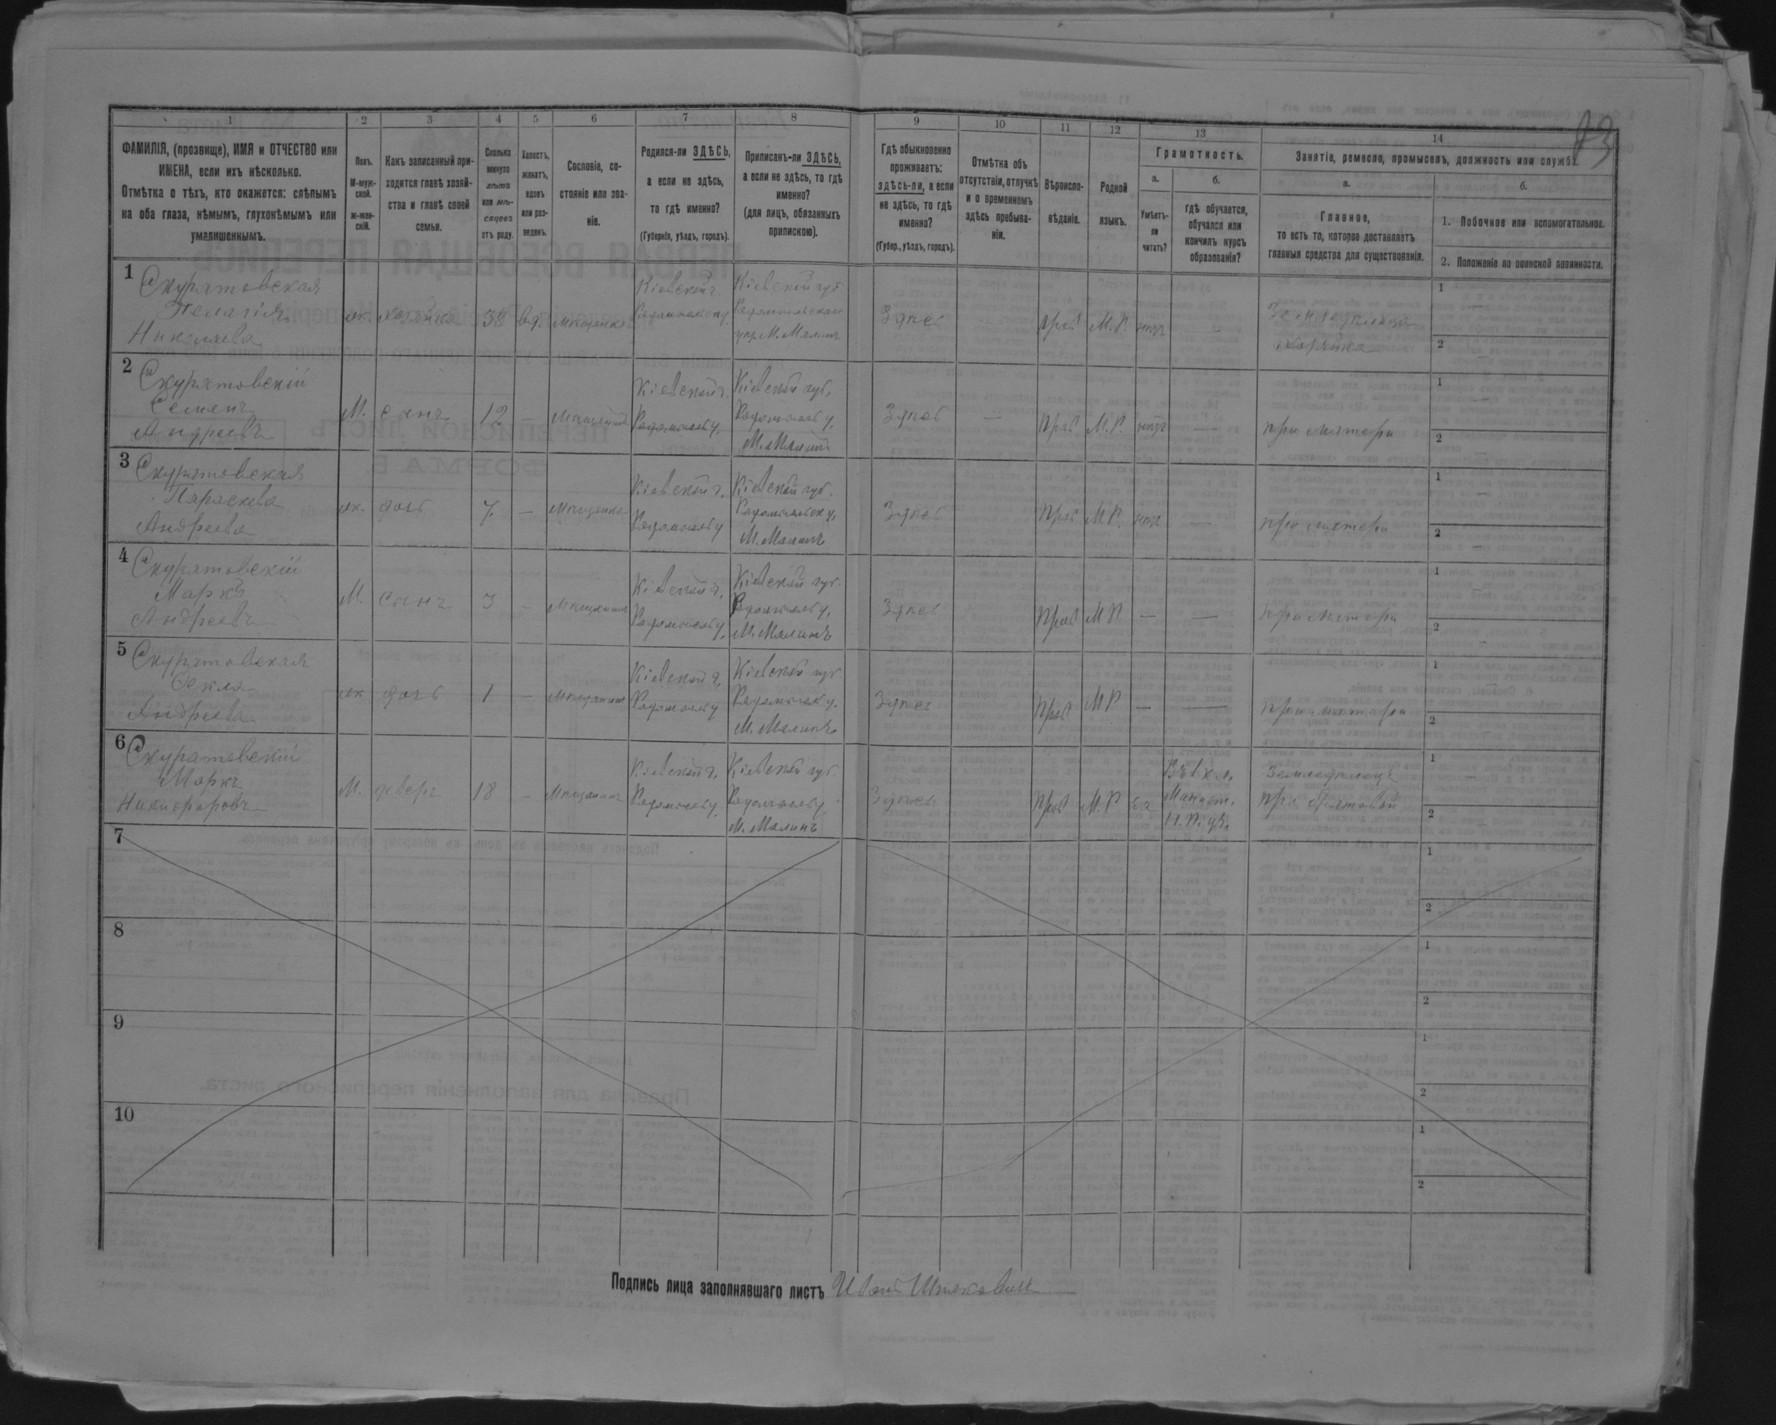 83
1 2 3 4 5 6 7 8 9 10 11 12 13 14
ФАМИЛІЯ, (прозвище), ИМЯ и ОТЧЕСТВО или
ИМЕНА, если ихъ нѣсколько.
Отмѣтка о тѣхъ, кто окажется: слѣпымъ
на оба глаза, нѣмымъ, глухонѣмымъ или
умалишеннымъ.
Полъ.
М-муж-
ской.
ж-жен-
скій.
Какъ записанный при-
ходится главѣ хозяй-
ства и главѣ своей
семьи.
Сколько
минуло
лѣтъ
или мѣ-
сяцевъ
отъ роду.
Холостъ,
женатъ,
вдовъ
или раз-
веденъ.
Сословіе, со-
стояніе или зва-
ніе.
Родился-ли ЗДѢСЬ,
а если не здѣсь,
то гдѣ именно?
(Губернія, уѣздъ, городъ).
Приписанъ-ли ЗДѢСЬ,
а если не здѣсь, то гдѣ
именно?
(для лицъ, обязанныхъ
припискою).
Гдѣ обыкновенно
проживаетъ:
здѣсь-ли, а если
не здѣсь, то гдѣ
именно?
(Губер., уѣздъ, городъ).
Отмѣтка объ
отсутствіи, отлучкѣ
и о временномъ
здѣсь пребыва-
ніи.
Вѣроиспо-
вѣданіе.
Родной
языкъ.
Грамотность.
а.
Умѣетъ-
ли
читать?
б.
гдѣ обучается,
обучался или
кончилъ курсъ
образованія?
Занятіе, ремесло, промыселъ, должность или служба.
а.
Главное,
то есть то, которое доставляетъ
главныя средства для существованія.
б.
1. Побочное или вспомогательное.
2. Положеніе по воинской повинности.
1 Скуратовская
Пелагія
Николаева
ж. хозяйка 38 вд. мѣщанка
Кіевской г.
Радомысльск. у.
Кіевской губ.
Радомысльскаго
уѣз. М. Малинъ
Здѣсь — прав М. Р. нѣтъ —
Земледѣлица
хозяйка
1 —
2 —
2 Скуратовскій
Семенъ
Андреевъ
М. сынъ 12 — мѣщанинъ
Кіевской г.
Радомысль у.
Кіевской губ.
Радомысль у.
М. Малинъ
Здѣсь — прав М. Р. нѣтъ —
при матери
1 —
2 —
3 Скуратовская
Параскева
Андреева
ж. дочь 7. — мѣщанка
Кіевской г.
Радомысль у
Кіевской губ.
Радомысльск у.
М. Малинъ
Здѣсь прав М Р. нѣтъ —
при матери
1 —
2 —
4 Скуратовскій
Маркъ
Андреевъ
М. сынъ 3 — мѣщанинъ
Кіевской г.
Радомысль у.
Кіевской губ.
Радомысль у.
М. Малинъ
Здѣсь прав М Р. — —
при матери
1 —
2 —
5 Скуратовская
Фекла
Андреева
ж дочь 1 — мѣщанка
Кіевской г.
Радомысль у
Кіевской губ
Радомысль у.
М. Малинъ
Здѣсь прав М Р — —
при матери
1 —
2 —
6 Скуратовскій
Маркъ
Никифоровъ
М. деверь 18 — мѣщанинъ
Кіевской г.
Радомысль у.
Кіевской губ
Радомысль у
М. Малинъ
Здѣсь прав М. Р да
Н. П. уч.
Земледѣлецъ
1 —
2 —
7
1
2
8
1
2
9
1
2
10
1
2
Подпись лица заполнявшаго листъ